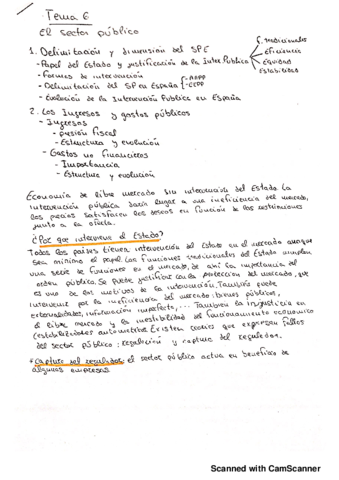 Tema 6
El sector público
1. Delimitación y dimensión del SPE
F. tradicionales
- Papel del Estado y justificación de la Inter. Pública
Eficiencia
Equidad
Estabilidad
- Formas de intervención
- Delimitación del SP en España
AAPP
EEPP
- Evolución de la Intervención Pública en España
2. Los Ingresos y gastos públicos
- Ingresos
- presión fiscal
- Estructura y evolución
- Gastos no financieros
- Importancia
- Estructura y evolución
Economía de libre mercado sin intervención del Estado. La
intervención pública daría lugar a una ineficiencia del mercado,
los precios satisfacen los deseos en función de las restricciones
junto a la oferta.
¿Por qué interviene el Estado?
Todos los países tienen intervención del Estado en el mercado aunque
sea mínimo el papel. Las funciones tradicionales del Estado cumplen
una serie de funciones en el mercado, de ahí la importancia del
orden público. Se puede justificar con la protección del mercado, que
es uno de los motivos de la intervención. También puede
intervenir por la ineficiencia del mercado: bienes públicos,
externalidades, información imperfecta,... También la injusticia en
el libre mercado y la inestabilidad del funcionamiento económico
(estabilizadores automáticos). Existen teorías que expresan fallos
del sector público: regulación y captura del regulador.
* Captura del regulador: el sector público actúa en beneficio de
algunas empresas.
Scanned with CamScanner